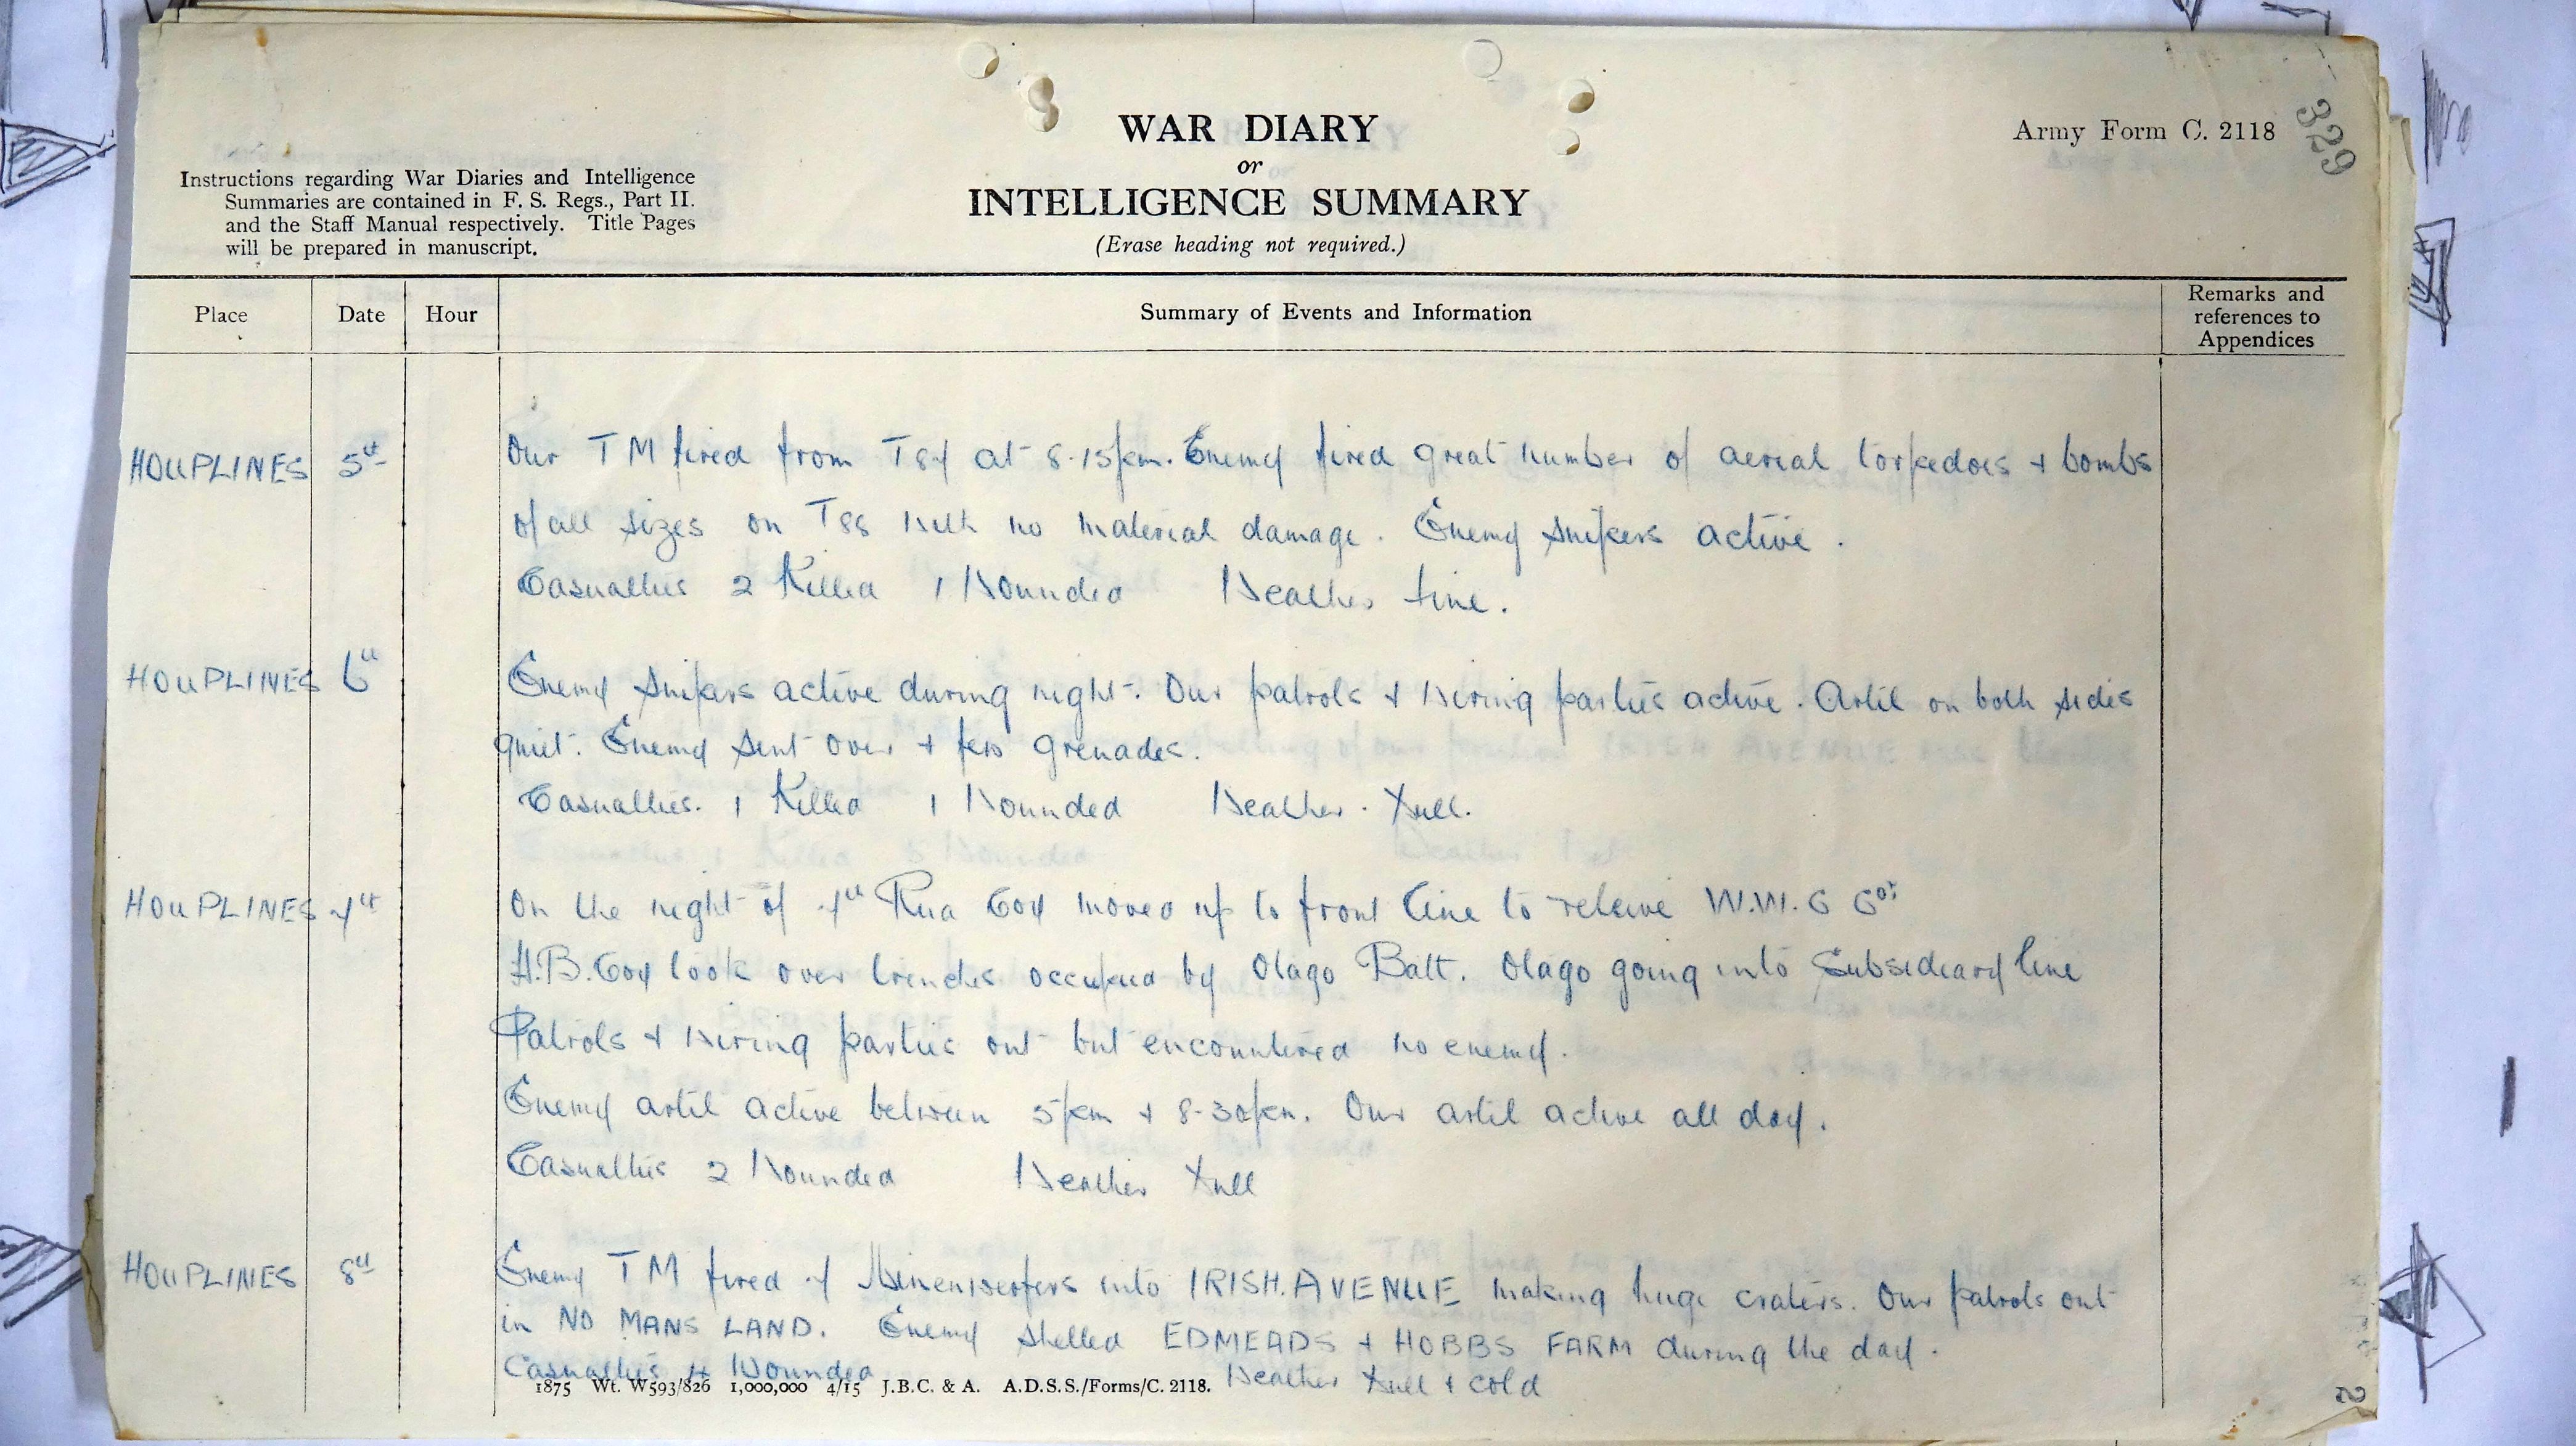 329
WAR DIARY
or
INTELLIGENCE SUMMARY
(Erase heading not required.)
Army Form C. 2118
Instructions regarding War Diaries and Intelligence
Summaries are contained in F. S. Regs., Part II.
and the Staff Manual respectively. Title Pages
will be prepared in manuscript.
Place Date Hour Summary of Events and Information Remarks and references to Appendices
HOUPLINES 5th Our TM fired from T87 at 8.15pm. Enemy fired great number of aerial torpedoes + bombs
of all sizes on T88 with no material damage. Enemy snipers active.
Casualties 2 Killed 1 Wounded Weather fine.
HOUPLINES 6th Enemy snipers active during night. Our patrols + wiring parties active. Artil on both sides
quiet. Enemy sent over + few grenades.
Casualties. 1 Killed 1 Wounded Weather. Dull.
HOUPLINES 7th On the night of 7th Rua Coy moved up to front line to releive W.W.C Coy
H.B. Coy took over trenches occupied by Otago Batt. Otago going into Subsidiary line
Patrols + wiring parties out but encountered no enemy.
Enemy artil active between 5pm + 8-30pm. Our artil active all day.
Casualties 2 Wounded Weather Dull
HOUPLINES 8th Enemy TM fired 7 Minenwerfers into IRISH. AVENUE making huge craters. Our patrols out
in NO MANS LAND. Enemy shelled EDMEADS + HOBBS FARM during the day.
Casualties 4 Wounded Weather Dull + cold
1875 Wt. W593/826 1,000,000 4/15 J.B.C. & A. A.D.S.S./Forms/C. 2118.